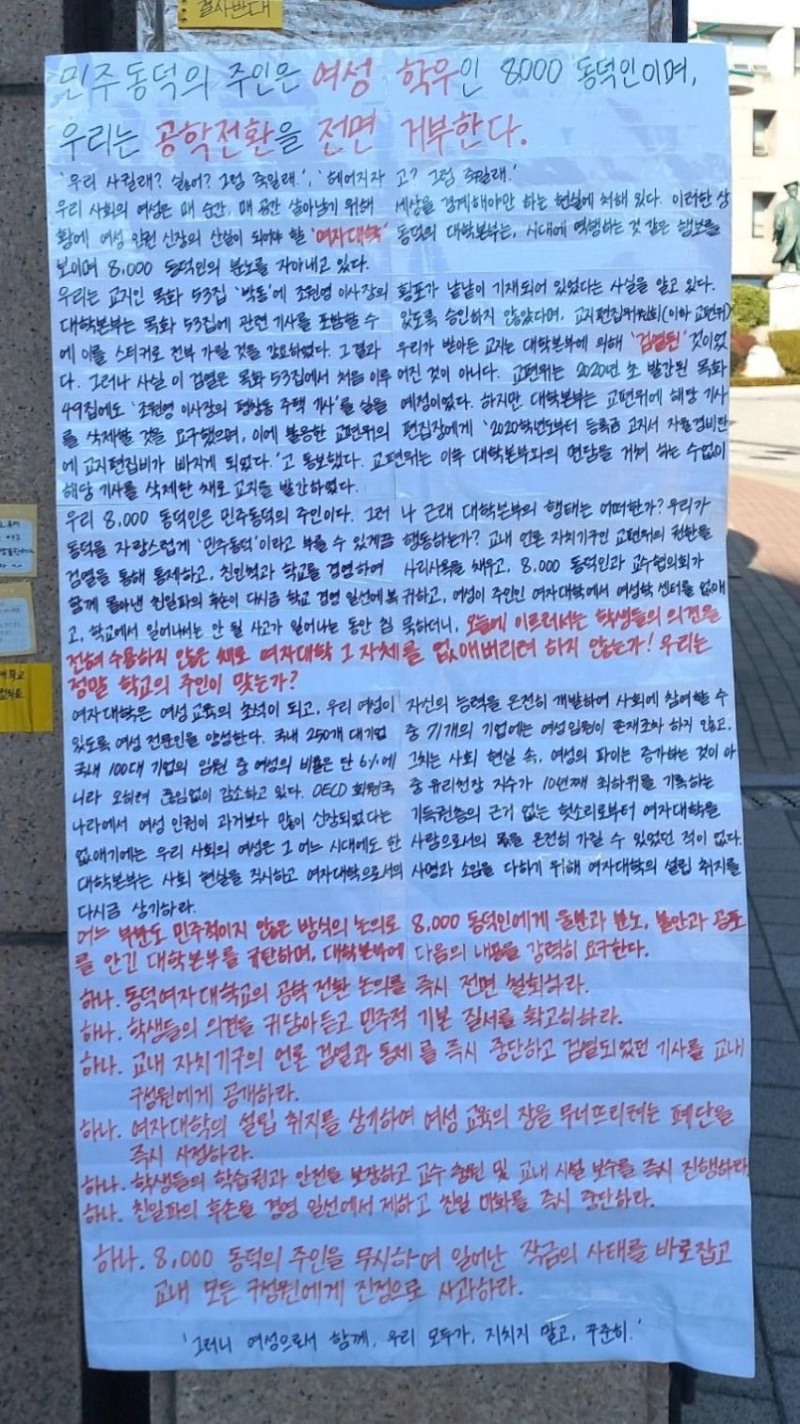 결사반대
민주동덕의 주인은 여성 학우인 8000 동덕인이며,
우리는 공학전환을 전면 거부한다.
'우리 사귈래? 싫어? 그럼 죽일래.', '헤어지자고? 그럼 죽일래.'
우리 사회의 여성은 매 순간, 매 공간 살아남기 위해 세상을 경계해야만 하는 현실에 처해 있다. 이러한 상
황에 여성 인권 신장의 산실이 되어야 할 '여자대학' 동덕의 대학본부는, 시대에 역행하는 것 같은 행보를
보이며 8,000 동덕인의 분노를 자아내고 있다.
우리는 교지인 목화 53집 '박동'에 조원영 이사장의 횡포가 낱낱이 기재되어 있었다는 사실을 알고 있다.
대학본부는 목화 53집에 관련 기사를 포함할 수 있도록 승인하지 않았다며, 교지편집위원회(이하 교편위)
에 이를 스티커로 전부 가릴 것을 강요하였다. 그 결과 우리가 받아든 교지는 대학본부에 의해 '검열된' 것이었
다. 그러나 사실 이 검열은 목화 53집에서 처음 이루어진 것이 아니다. 교편위는 2020년 초 발간된 목화
49집에도 '조원영 이사장의 평창동 주택 기사'를 실을 예정이었다. 하지만 대학본부는 교편위에 해당 기사
를 삭제할 것을 요구했으며, 이에 불응한 교편위의 편집장에게 '2020학년도부터 등록금 고지서 자율경비란
에 교지편집비가 빠지게 되었다.'고 통보했다. 교편위는 이후 대학본부와의 면담을 거쳐 하는 수없이
해당 기사를 삭제한 채로 교지를 발간하였다.
우리 8,000 동덕인은 민주동덕의 주인이다. 그러나 근래 대학본부의 행태는 어떠한가? 우리가
동덕을 자랑스럽게 '민주동덕'이라고 부를 수 있게끔 행동하는가? 교내 언론 자치기구인 교편위의 권한을
검열을 통해 통제하고, 친인척과 학교를 경영하여 사리사욕을 채우고, 8,000 동덕인과 교수협의회가
함께 몰아낸 친일파의 후손이 다시금 학교 경영 일선에 복귀하고, 여성이 주인인 여자대학에서 여성학 센터를 없애
고, 학교에서 일어나서는 안 될 사고가 일어나는 동안 침묵하더니, 오늘에 이르러서는 학생들의 의견을
전혀 수용하지 않은 채로 여자대학 그 자체를 없애버리려 하지 않는가! 우리는
정말 학교의 주인이 맞는가?
여자대학은 여성 교육의 초석이 되고, 우리 여성이 자신의 능력을 온전히 개발하여 사회에 참여할 수
있도록 여성 전문인을 양성한다. 국내 250개 대기업 중 71개의 기업에는 여성임원이 존재조차 하지 않고,
국내 100대 기업의 임원 중 여성의 비율은 단 6%에 그치는 사회 현실 속, 여성의 파이는 증가하는 것이 아
니라 오히려 끊임없이 감소하고 있다. OECD 회원국 중 유리천장 지수가 10년째 최하위를 기록하는
나라에서 여성 인권이 과거보다 많이 신장되었다는 기득권층의 근거 없는 헛소리로부터 여자대학을
없애기에는 우리 사회의 여성은 그 어느 시대에도 한 사람으로서의 몫을 온전히 가질 수 있었던 적이 없다.
대학본부는 사회 현실을 직시하고 여자대학으로서의 사명과 소임을 다하기 위해 여자대학의 설립 취지를
다시금 상기하라.
어느 부분도 민주적이지 않은 방식의 논의로 8,000 동덕인에게 울분과 분노, 불안과 공포
를 안긴 대학본부를 규탄하며, 대학본부에 다음의 내용을 강력히 요구한다.
하나. 동덕여자대학교의 공학 전환 논의를 즉시 전면 철회하라.
하나. 학생들의 의견을 귀담아듣고 민주적 기본 질서를 확고히하라.
하나. 교내 자치기구의 언론 검열과 통제를 즉시 중단하고 검열되었던 기사를 교내
구성원에게 공개하라.
하나. 여자대학의 설립 취지를 상기하여 여성 교육의 장을 무너뜨리려는 폐단을
즉시 시정하라.
하나. 학생들의 학습권과 안전을 보장하고 교수 충원 및 교내 시설 보수를 즉시 진행하라
하나. 친일파의 후손을 경영 일선에서 제하고 친일 미화를 즉시 중단하라.
하나. 8,000 동덕의 주인을 무시하여 일어난 작금의 사태를 바로잡고
교내 모든 구성원에게 진정으로 사과하라.
'그러니 여성으로서 함께, 우리 모두가, 지치지 말고, 꾸준히.'